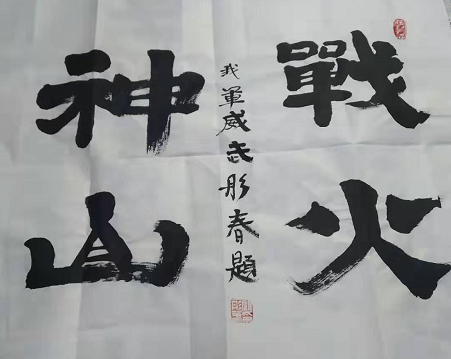 戰火
神山
我軍威武彤春題